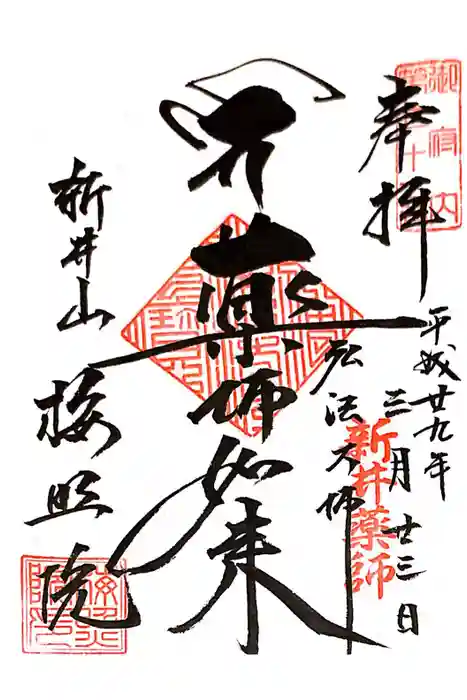 奉拝
平成廿九年
三月廿三日
新井薬師
弘法大師
薬師如来
新井山
梅照院
御府内